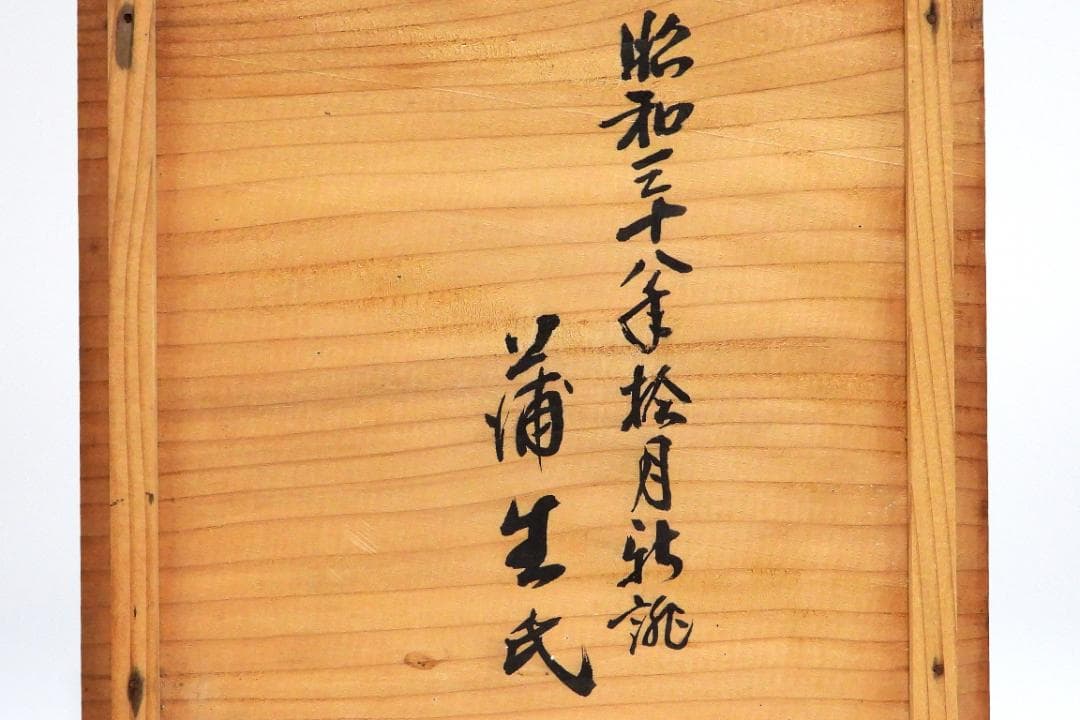 昭和三十八年拾月新誂
蒲生氏